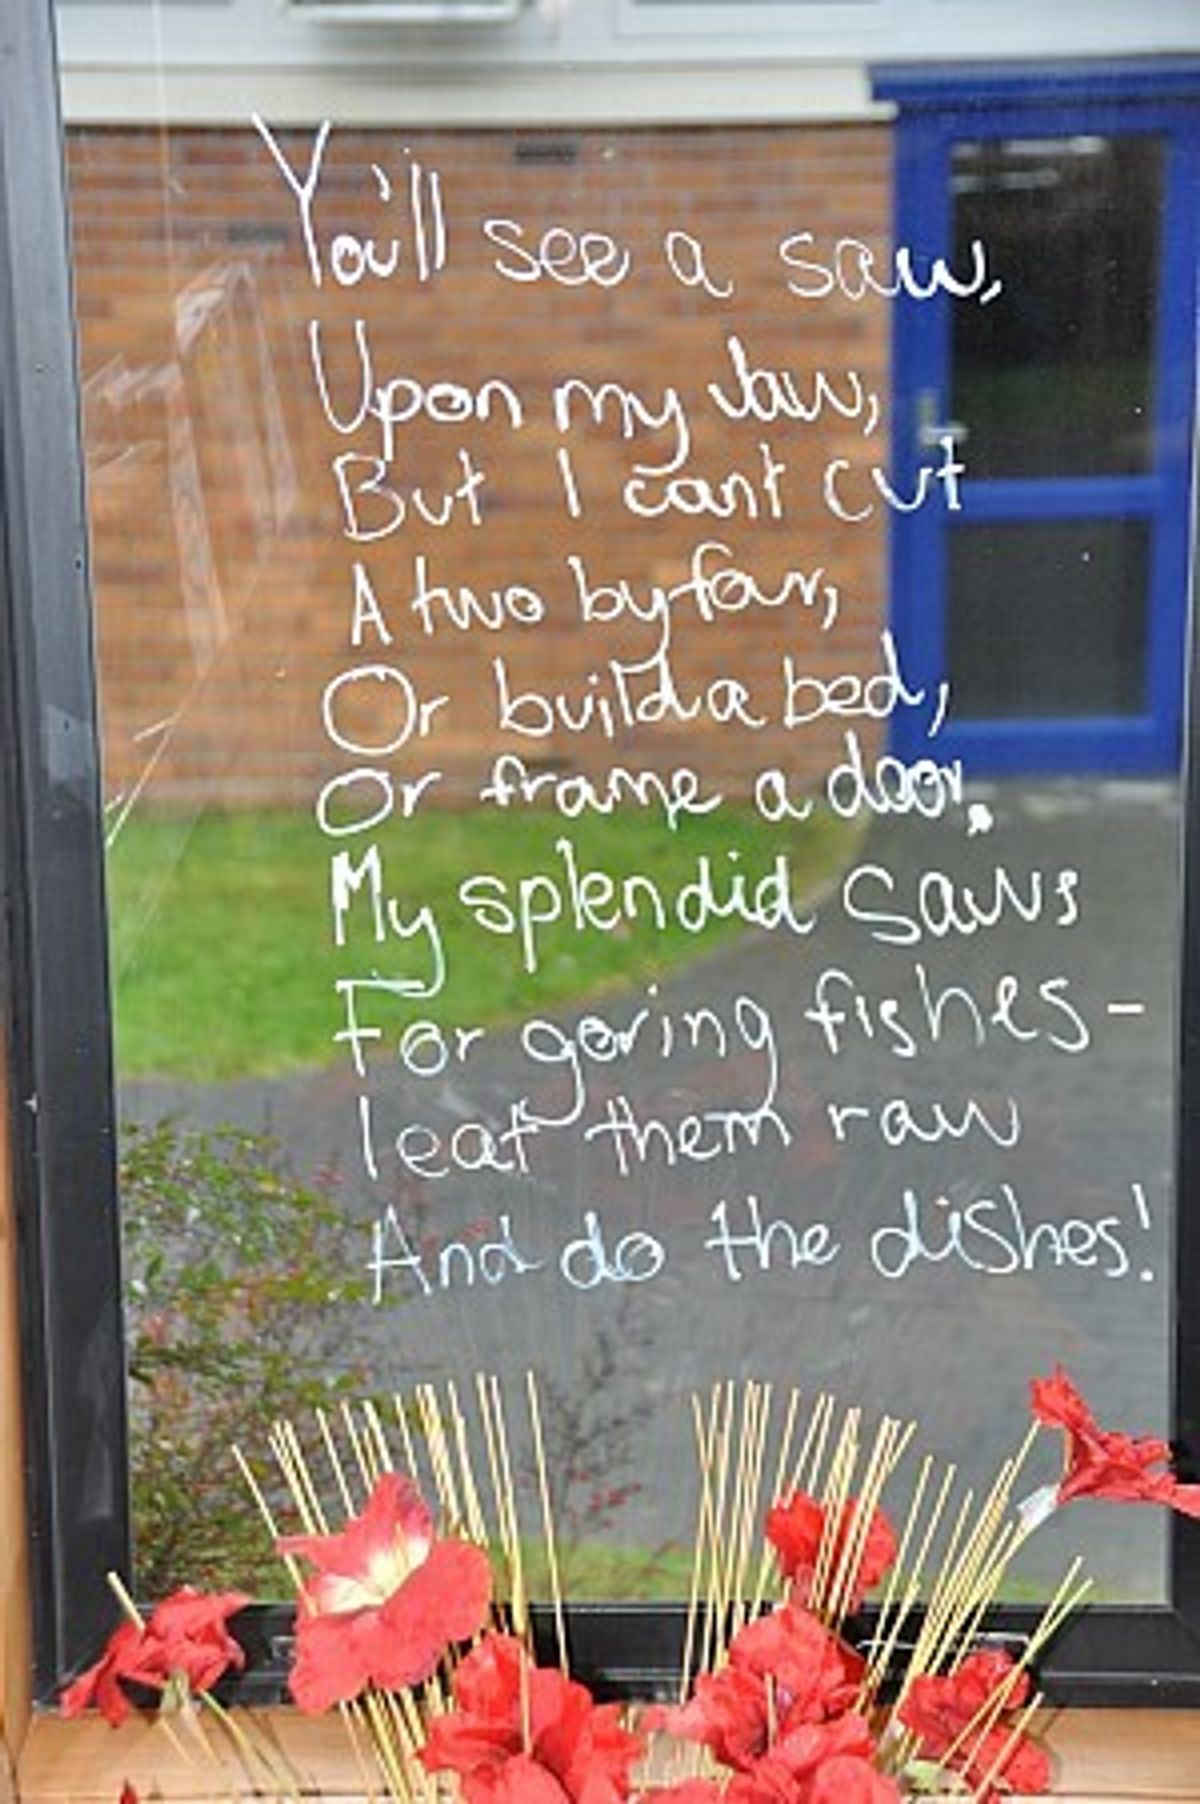 You'll see a saw,
Upon my jaw,
But I cant cut
A two by far,
Or build a bed,
Or frame a door.
My splendid saws
For goring fishes-
I eat them raw
And do the dishes!